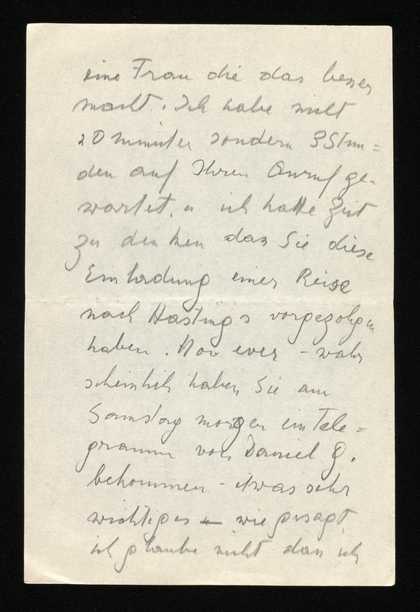 eine Frau die das besser
macht. Ich habe nicht
20 minuten sondern 3 Stun=
den auf Ihren Anruf ge-
wartet, u ich hatte Zeit
zu denken das Sie diese
Einladung einer Reise
nach Hastings vorgezogen
haben. How ever – wahr
scheinlich haben Sie am
Samstag morgen ein Tele=
gramm von Daniel G.
bekommen – etwas sehr
wichtiges – wie gesagt
ich glaube nicht dass ich